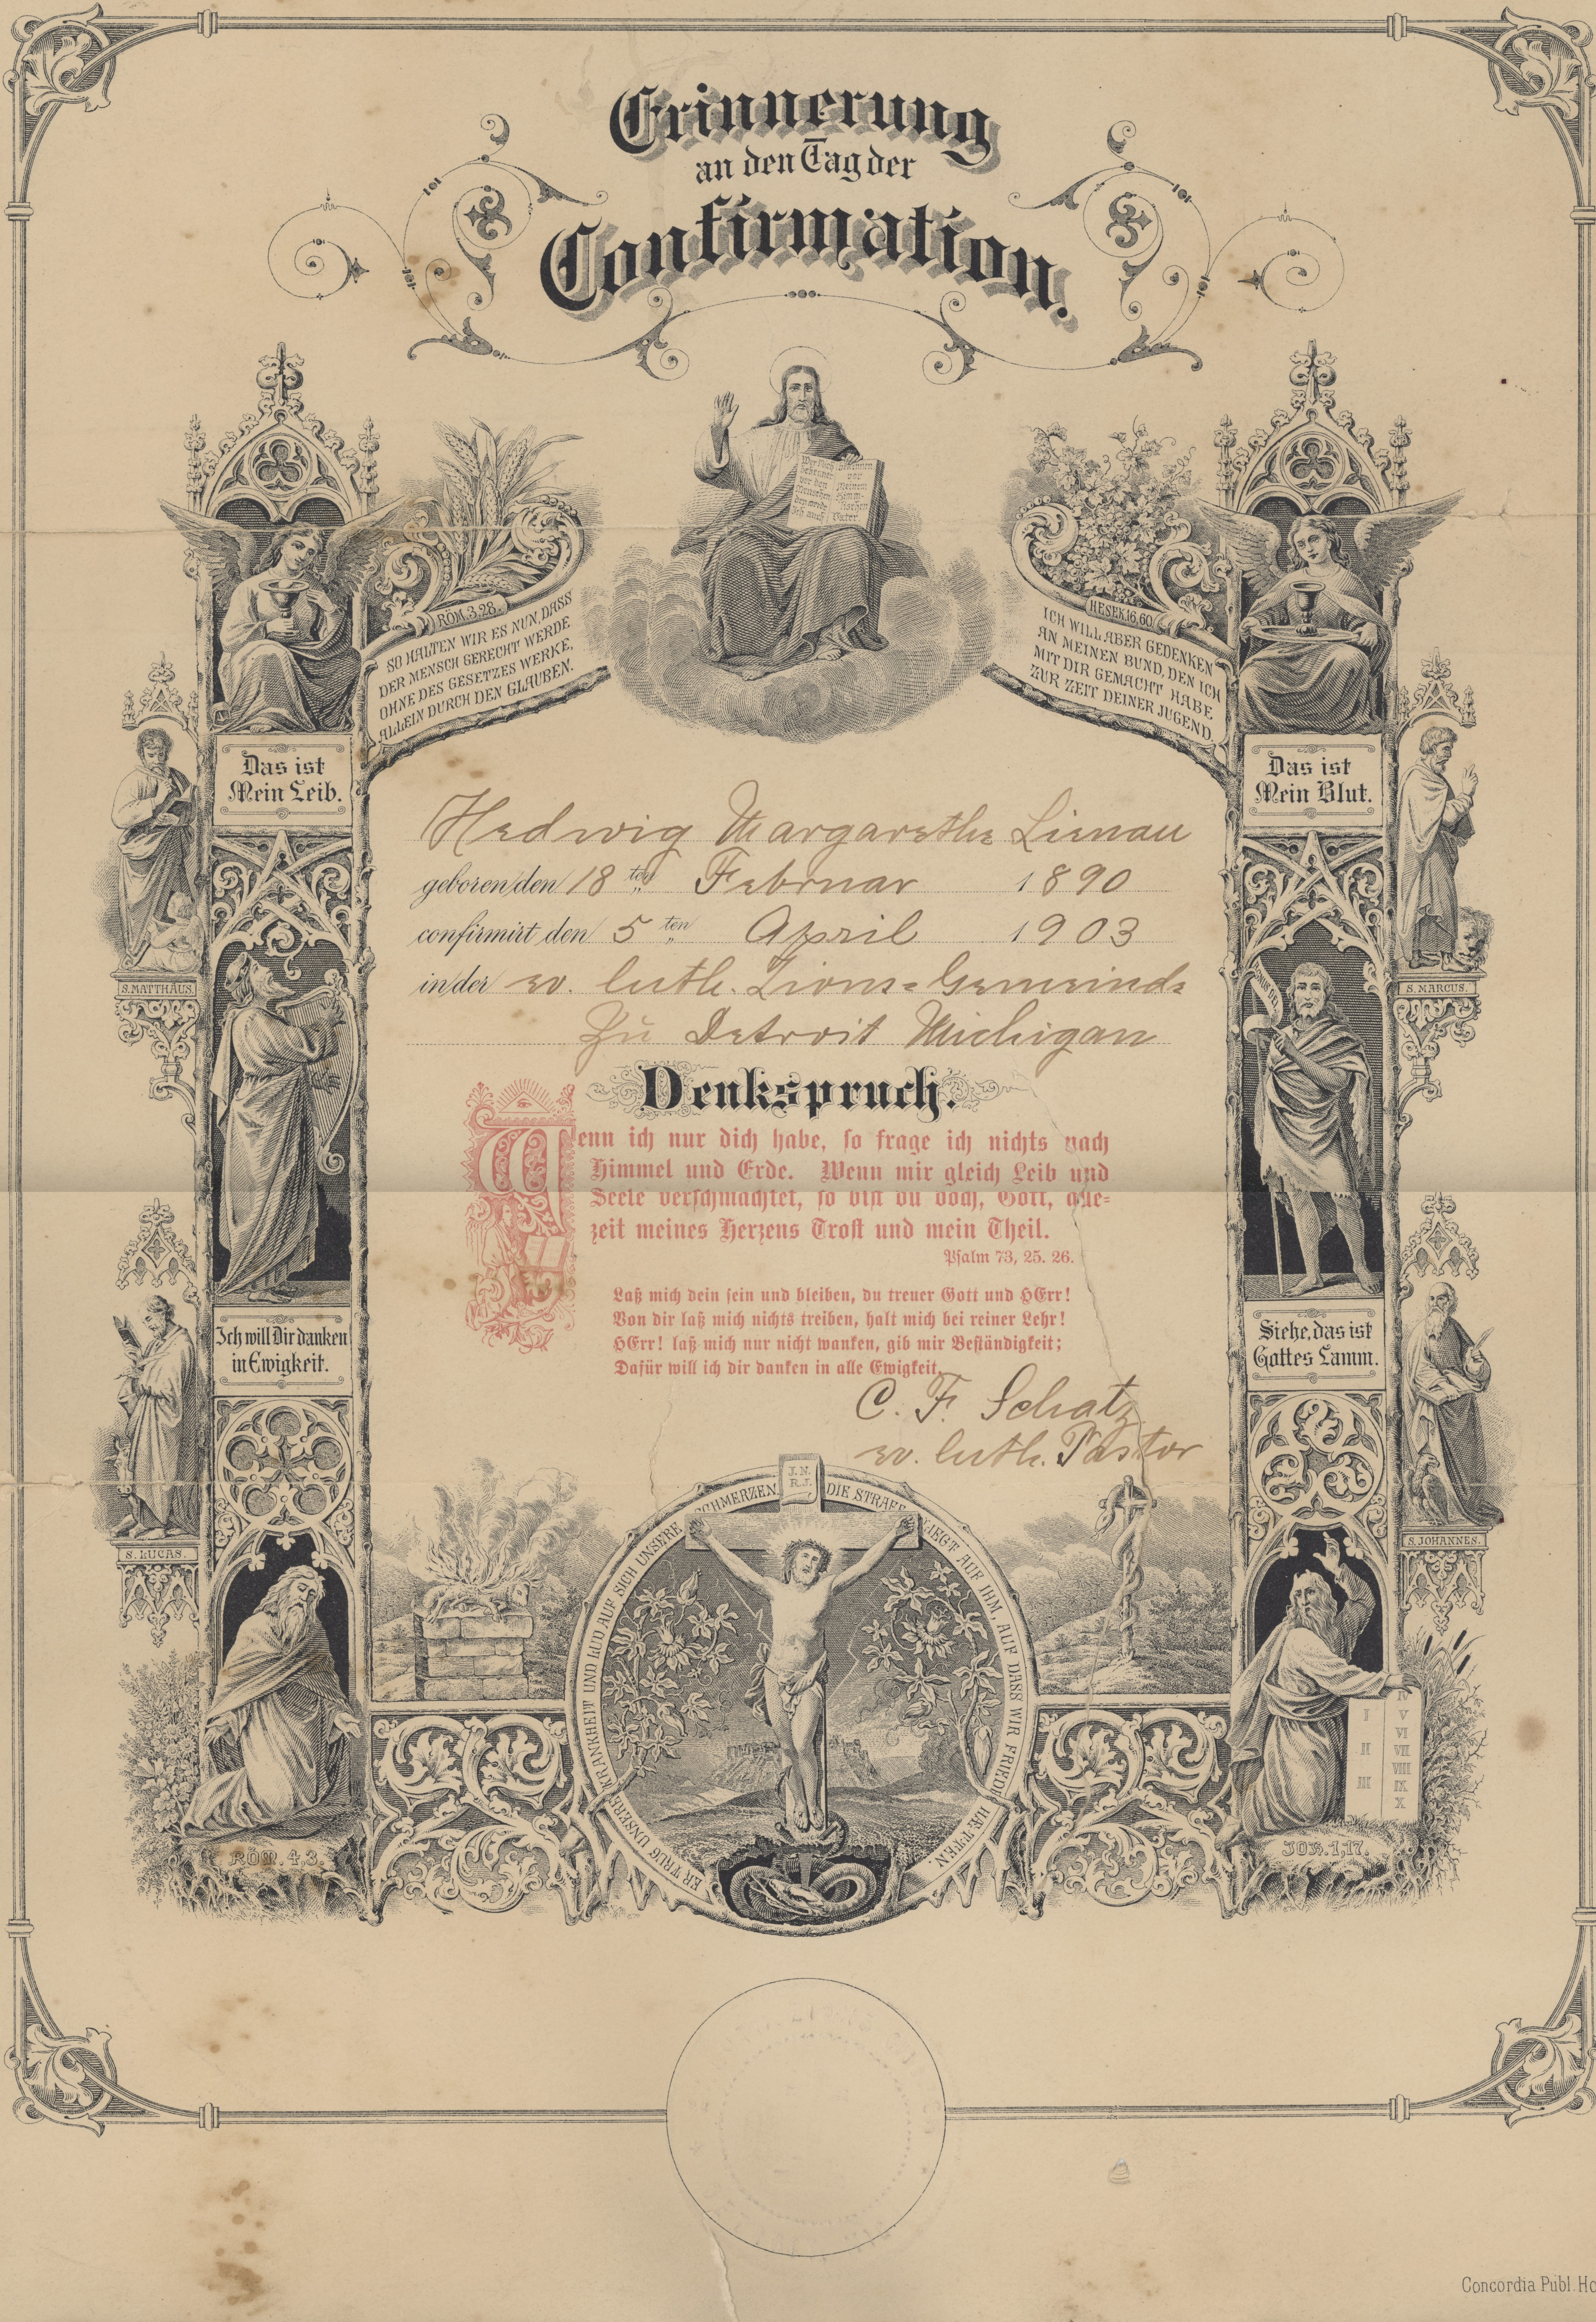 Erinnerung
an den Tag der
Confirmation.
Wer Mich
bekennet
vor den
Menschen,
den werde
Ich auch
bekennen
vor
Meinem
Himm-
lischen
Vater
RÖM. 3,28.
SO HALTEN WIR ES NUN, DASS
DER MENSCH GERECHT WERDE
OHNE DES GESETZES WERKE,
ALLEIN DURCH DEN GLAUBEN.
HESEK. 16,60.
ICH WILL ABER GEDENKEN
AN MEINEN BUND, DEN ICH
MIT DIR GEMACHT HABE
ZUR ZEIT DEINER JUGEND.
Das ist
Mein Leib.
Das ist
Mein Blut.
Hedwig Margarethe Lienau
geboren den 18ten Februar 1890
confirmirt den 5ten April 1903
in der ev. luth. Zions-Gemeinde
zu Detroit Michigan
S. MATTHÄUS.
S. MARCUS.
Denkspruch.
Wenn ich nur dich habe, so frage ich nichts nach
Himmel und Erde. Wenn mir gleich Leib und
Seele verschmachtet, so bist du doch, Gott, alle-
zeit meines Herzens Trost und mein Theil.
Psalm 73, 25. 26.
Laß mich dein sein und bleiben, du treuer Gott und HErr!
Von dir laß mich nichts treiben, halt mich bei reiner Lehr!
HErr! laß mich nur nicht wanken, gib mir Beständigkeit;
Dafür will ich dir danken in alle Ewigkeit.
Ich will Dir danken
in Ewigkeit.
Siehe, das ist
Gottes Lamm.
C. F. Schatz
ev. luth. Pastor
S. LUCAS.
S. JOHANNES.
J. N.
R. J.
ER TRUG UNSERE KRANKHEIT UND LUD AUF SICH UNSERE SCHMERZEN. DIE STRAFE LIEGT AUF IHM, AUF DASS WIR FRIEDE HÄTTEN.
I
II
III
IV
V
VI
VII
VIII
IX
X
RÖM. 4,3.
JOH. 1,17.
Concordia Publ. Ho